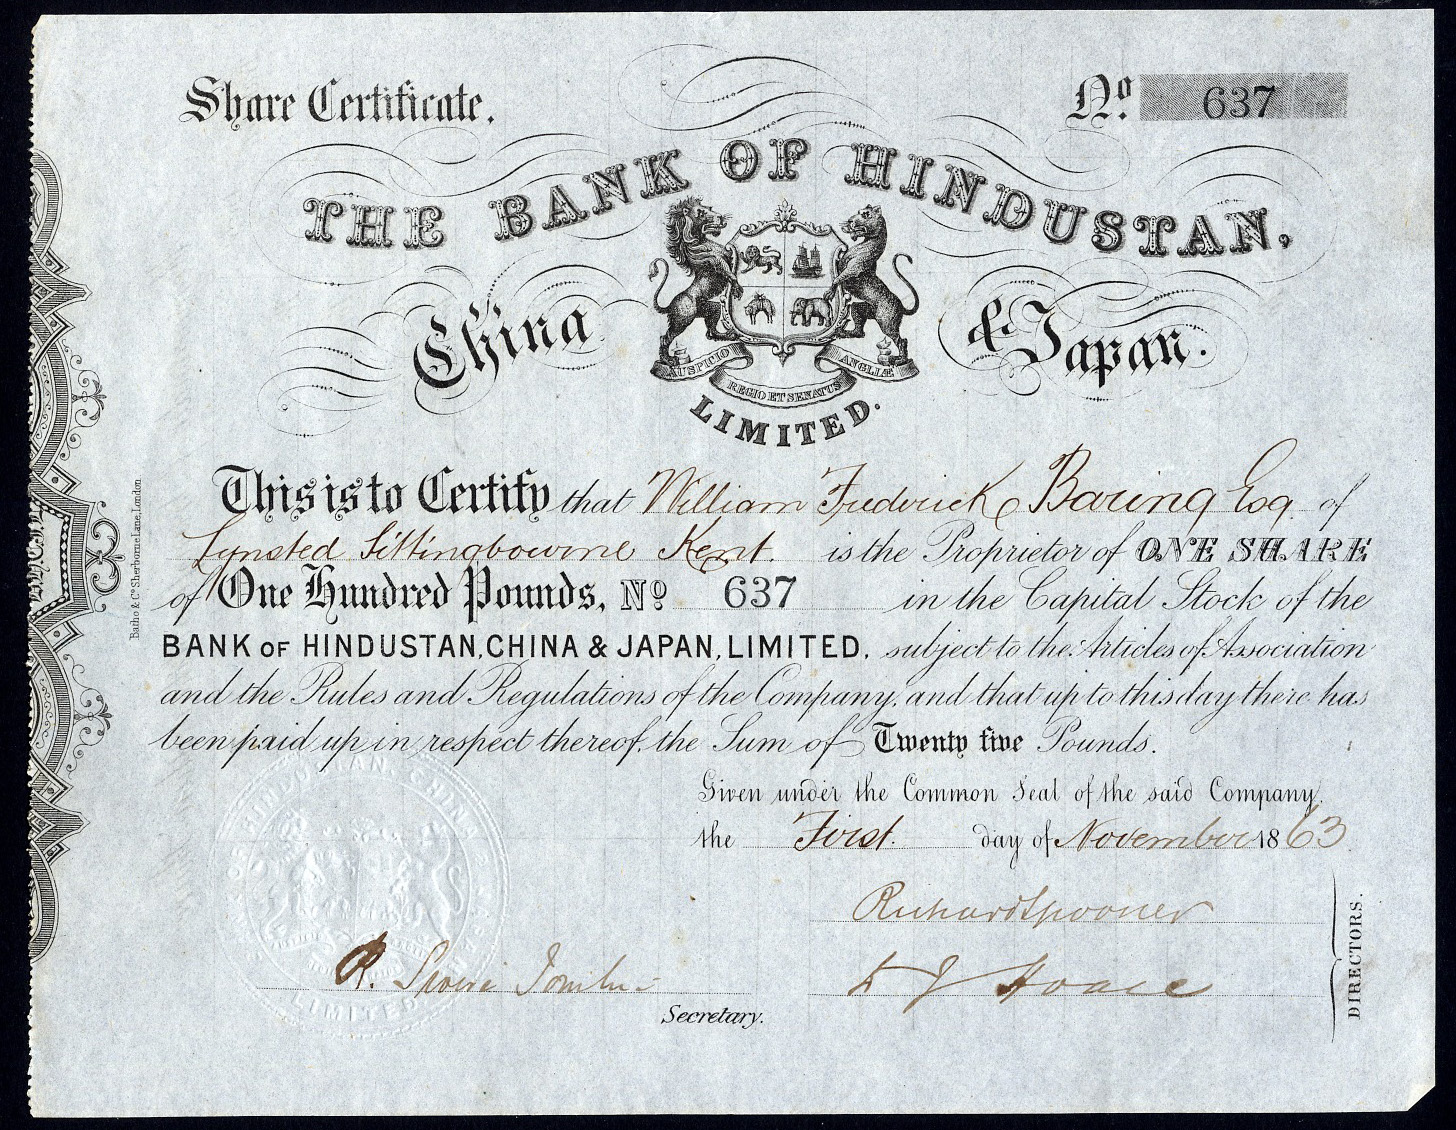 Share Certificate.
No. 637
THE BANK OF HINDUSTAN,
China & Japan.
AUSPICIO REGIO ET SENATUS ANGLIÆ
LIMITED.
This is to Certify that William Frederick Baring Esq. of
Lynsted Sittingbourne Kent. is the Proprietor of ONE SHARE
of One Hundred Pounds, No. 637 in the Capital Stock of the
BANK OF HINDUSTAN, CHINA & JAPAN, LIMITED, subject to the Articles of Association
and the Rules and Regulations of the Company, and that up to this day there has
been paid up in respect thereof, the Sum of Twenty five Pounds.
Given under the Common Seal of the said Company.
the First. day of November 1863.
Richard Spooner
DIRECTORS.
R.
Secretary.
Batho & Co. Sherborne Lane, London.
HINDUSTAN, CHINA
LIMITED